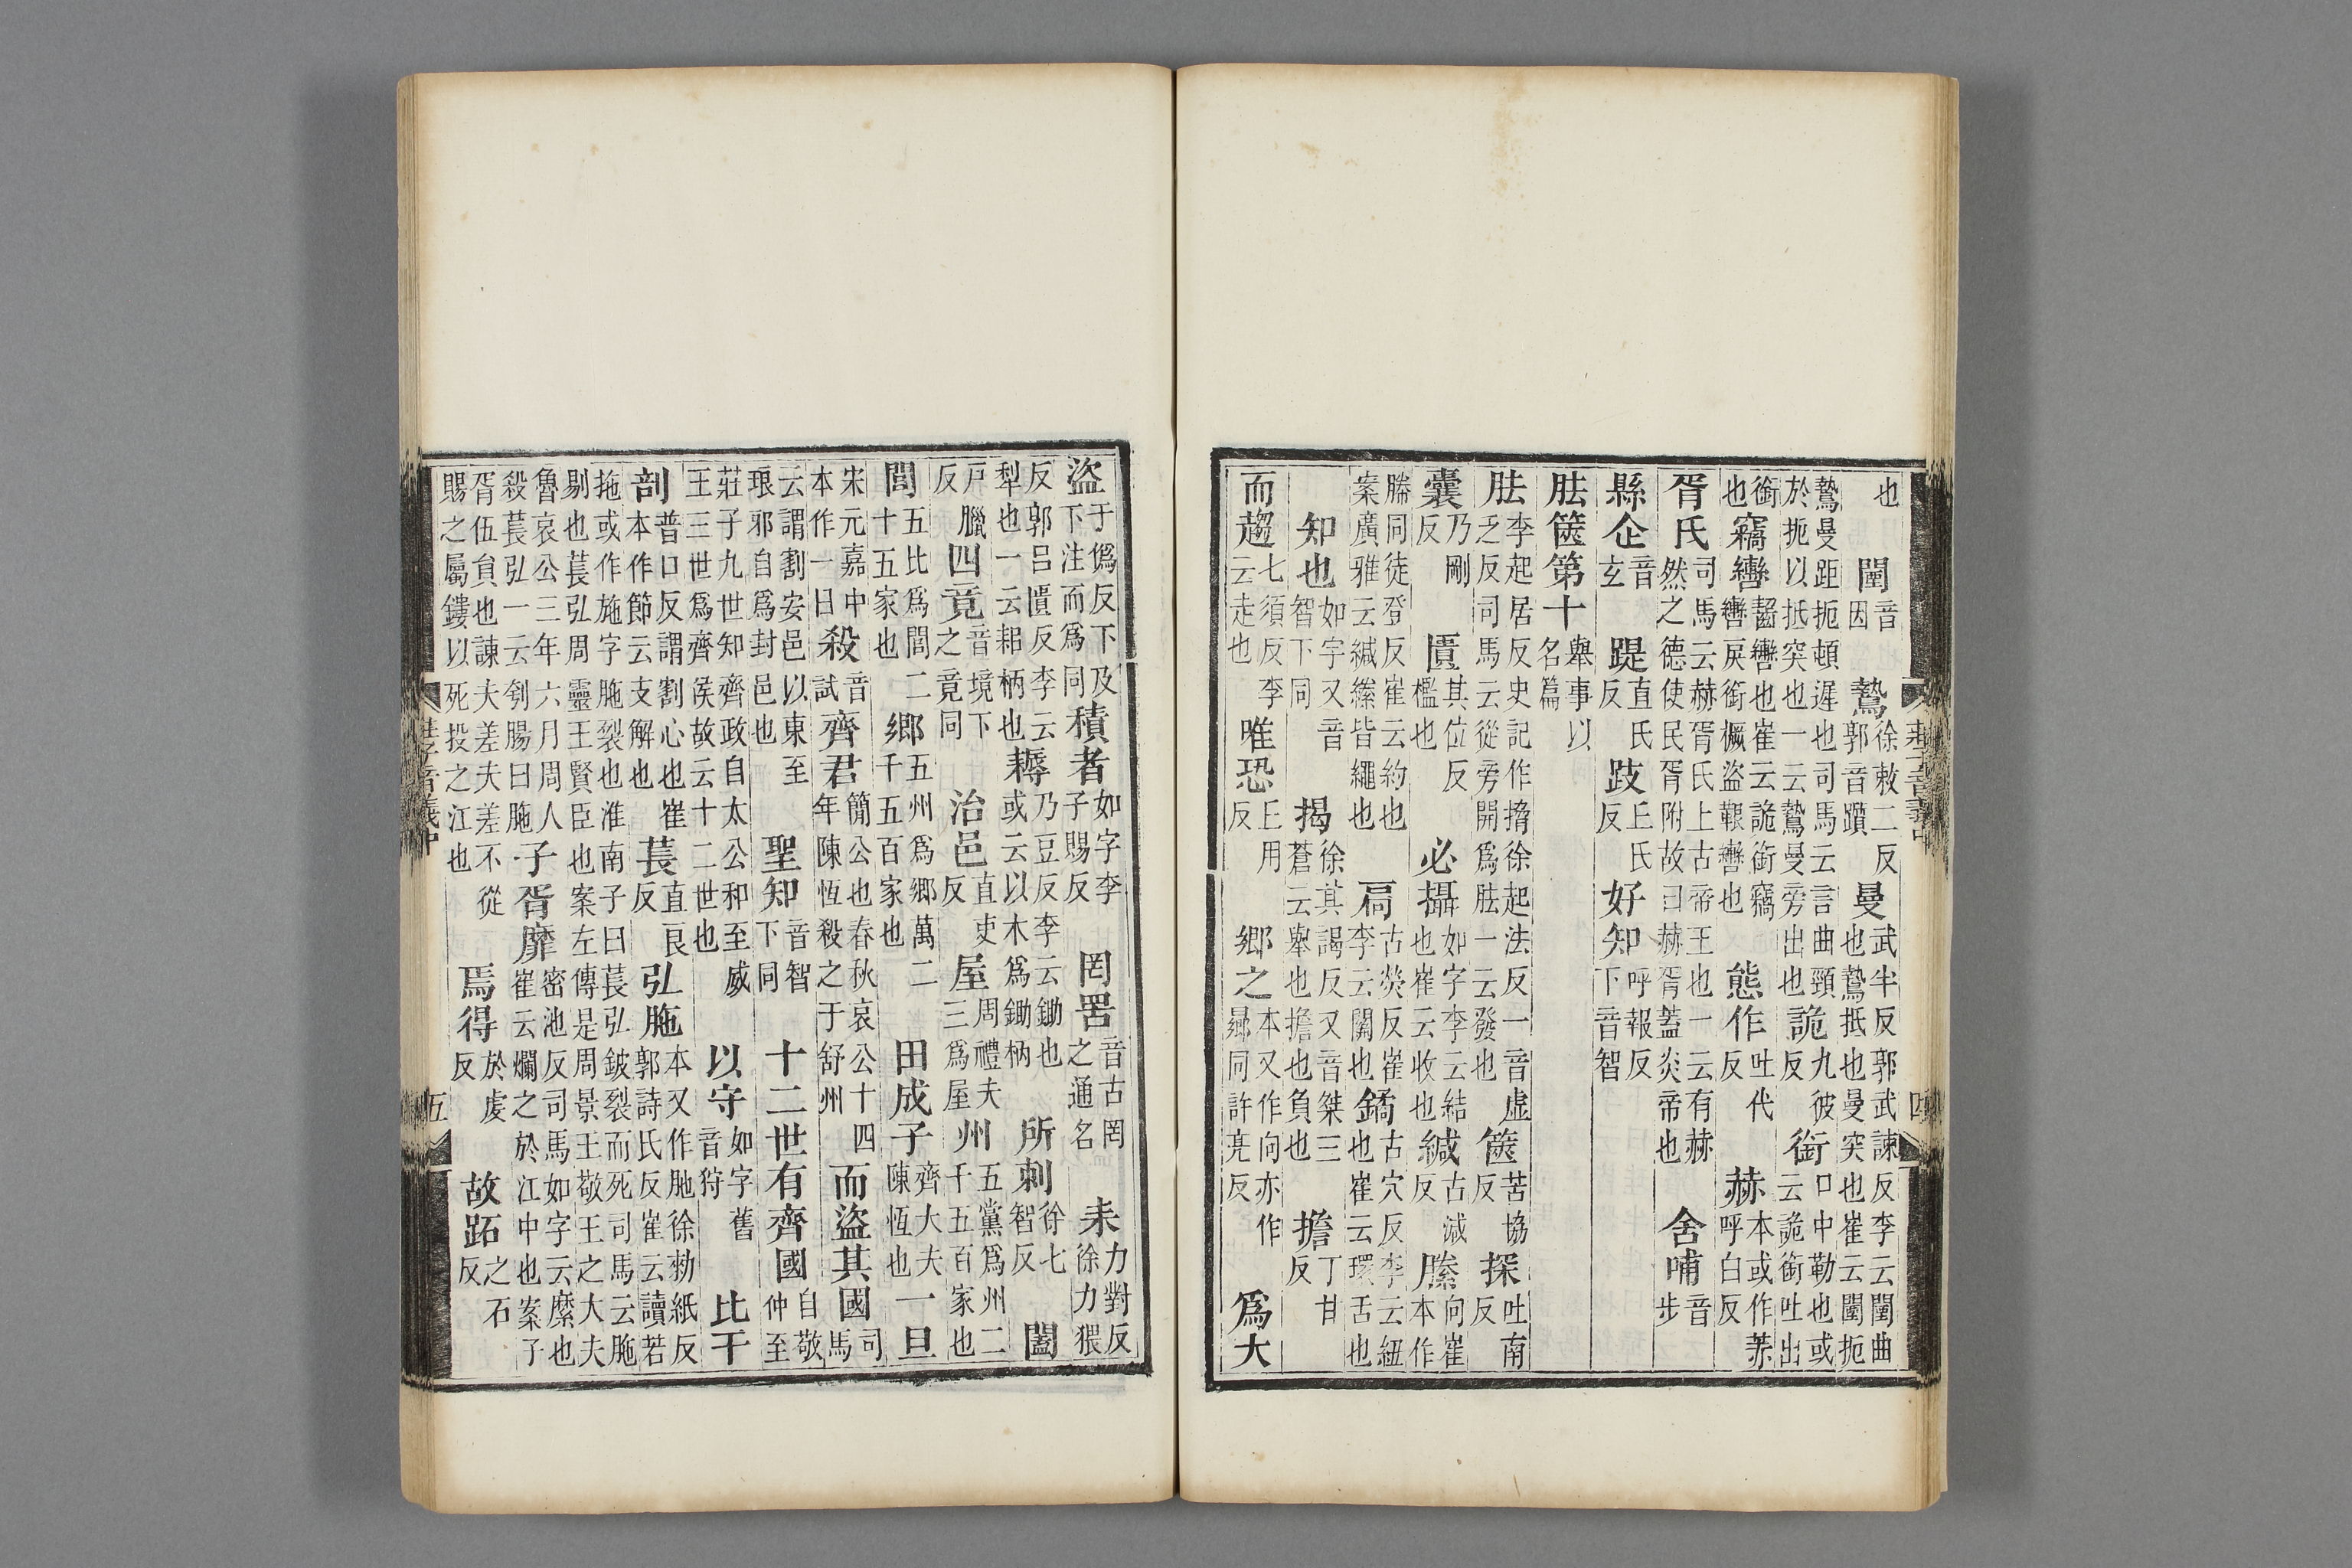 也闉音因鷙徐敕二反郭音躓曼武半反郭武諫反李云闉曲也鷙抵也曼突也崔云闉扼
鷙曼距扼頓遲也司馬云言曲頸於扼以抵突也一云鷙曼旁出也詭九彼反銜口中勒也或云詭銜吐出
銜也竊轡齧轡也崔云詭銜竊轡戾銜橛盜鞎轡也態作吐代反赫本或作𦯄呼白反
胥氏司馬云赫胥氏上古帝王也一云有赫然之德使民胥附故曰赫胥蓋炎帝也舍哺音步
縣企音玄踶直氏反跂丘氏反好知呼報反下音智
胠篋第十舉事以名篇
胠李起居反史記作擠徐起法反一音虛乏反司馬云從旁開爲胠一云發也篋苦協反探吐南反
囊乃剛反匱其位反檻也必攝如字李云結也崔云收也緘古減反縢向崔本作
幐同徒登反崔云約也案廣雅云緘縢皆繩也扃古熒反崔李云關也鐍古穴反李云紐也崔云環舌也
知也如字又音智下同揭徐其謁反又音桀三蒼云舉也擔也負也擔丁甘反
而趨七須反李云走也唯恐丘用反鄉之本又作向亦作曏同許亮反爲大
盜于僞反下下注而爲及同積者如字李子賜反罔罟音古罔之通名耒力對反徐力猥
反郭呂匱反李云犁也一云耜柄也耨乃豆反李云鋤也或云以木爲鋤柄所刺徐七智反闔
戸臘反四竟音境下之竟同治邑直吏反屋周禮夫三爲屋州五黨爲州二千五百家也
閭五比爲閭二十五家也鄉五州爲鄉萬二千五百家也田成子齊大夫陳恆也一旦
宋元嘉中本作一日殺音試齊君簡公也春秋哀公十四年陳恆殺之于舒州而盜其國司馬
云謂割安邑以東至琅邪自爲封邑也聖知音智下同十二世有齊國自敬仲至
莊子九世知齊政自太公和至威王三世爲齊侯故云十二世也以守如字舊音狩比干
剖普口反謂割心也崔本作節云支解也萇直良反弘胣本又作肔徐勑紙反郭詩氏反崔云讀若
拖或作施字胣裂也淮南子曰萇弘鈹裂而死司馬云胣剔也萇弘周靈王賢臣也案左傳是周景王敬王之大夫
魯哀公三年六月周人殺萇弘一云刳腸曰胣子胥靡密池反司馬如字云縻也崔云爛之於江中也案子
胥伍員也諫夫差夫差不從賜之屬鏤以死投之江也焉得於虔反故跖之石反
莊子音義中
五